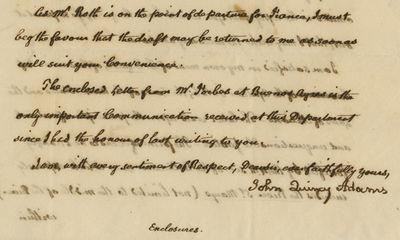 As Mr. Roth is on the point of departure for France, I must
beg the favour that the draft may be returned to me as soon as
will suit your Convenience.
The enclosed Letter from Mr. Forbes at Buenos Ayres is the
only important Communication received at this Department
since I had the honour of last writing to you.
I am, with every sentiment of Respect, Dear Sir, ever faithfully yours,
John Quincy Adams
Enclosures.